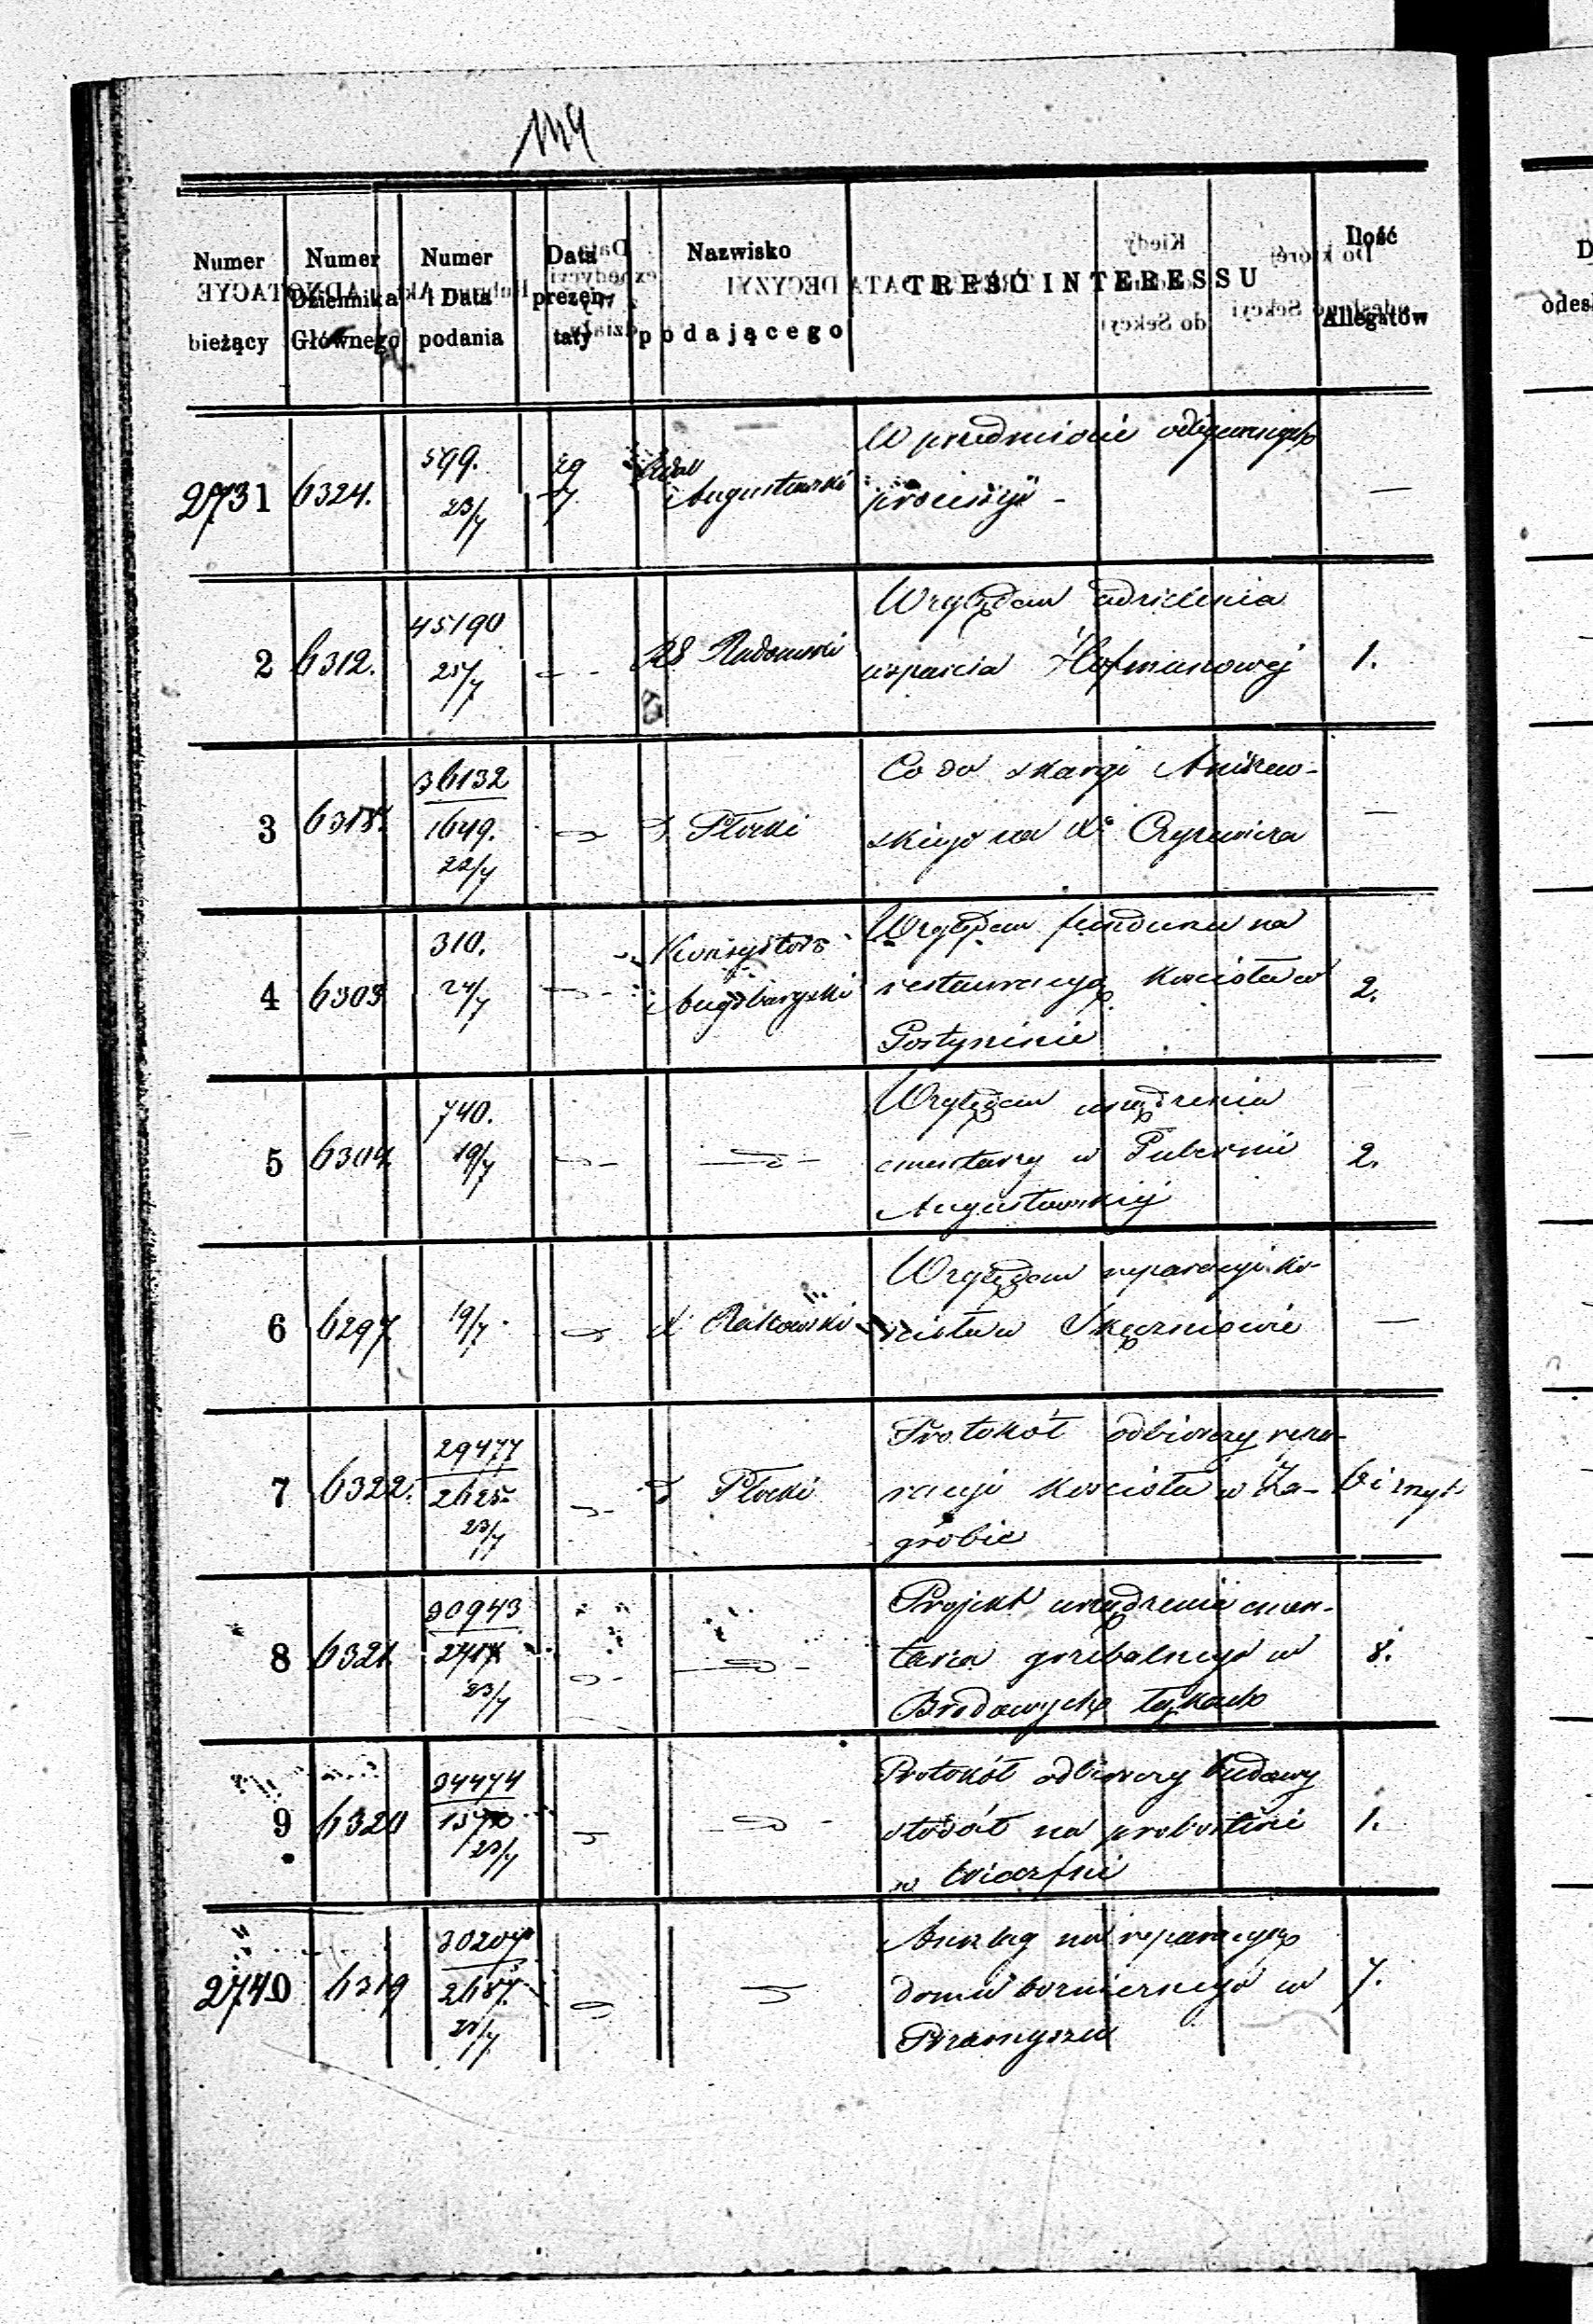 149
Numer bieżący
Numer Dziennika Głównego
Numer i Data podania
Data prezentaty
Nazwisko podającego
TREŚĆ INTERESSU
Ilość Allegatów
2731 6324. 599. 23/7 29/7 Augustowski W przedmiocie
processyi - —
2 6312. 45190 25/7 RG Radomski Względem udzielenia
wsparcia Hofmanowej 1.
3 6318. 36132 1649. 22/7 Płocki Co do skargi Aniszew-
skiego na Xa Czyżewicza —
4 6303 310. 24/7 Konsystorz Augsburgski Względem funduszu na
restauracyą kościoła w 2.
Gostyninie
5 6304. 740. 19/7 Względem urządzenia
cmentarzy w Gubernii 2.
Augustowskiej
6 6297 19/7 X Rakowski Względem reparacyi ko-
ścioła w Skęczniewie —
7 6322. 29477 2625 23/7 Płocki Protokół odbiorczy repa-
racyi kościoła w Za- 6 i
grobie
8 6321. 30943 23/7 Projekt urządzenia cmen-
tarza grzebalnego w 8.
Brodowych Łąkach
9 6320 34474 23/7 Protokół odbiorczy budowy
stodół na probostwie 1.
w Wieczfni
2740 6319 30207 2687. Anszlag na reparacyą
domu w 7.